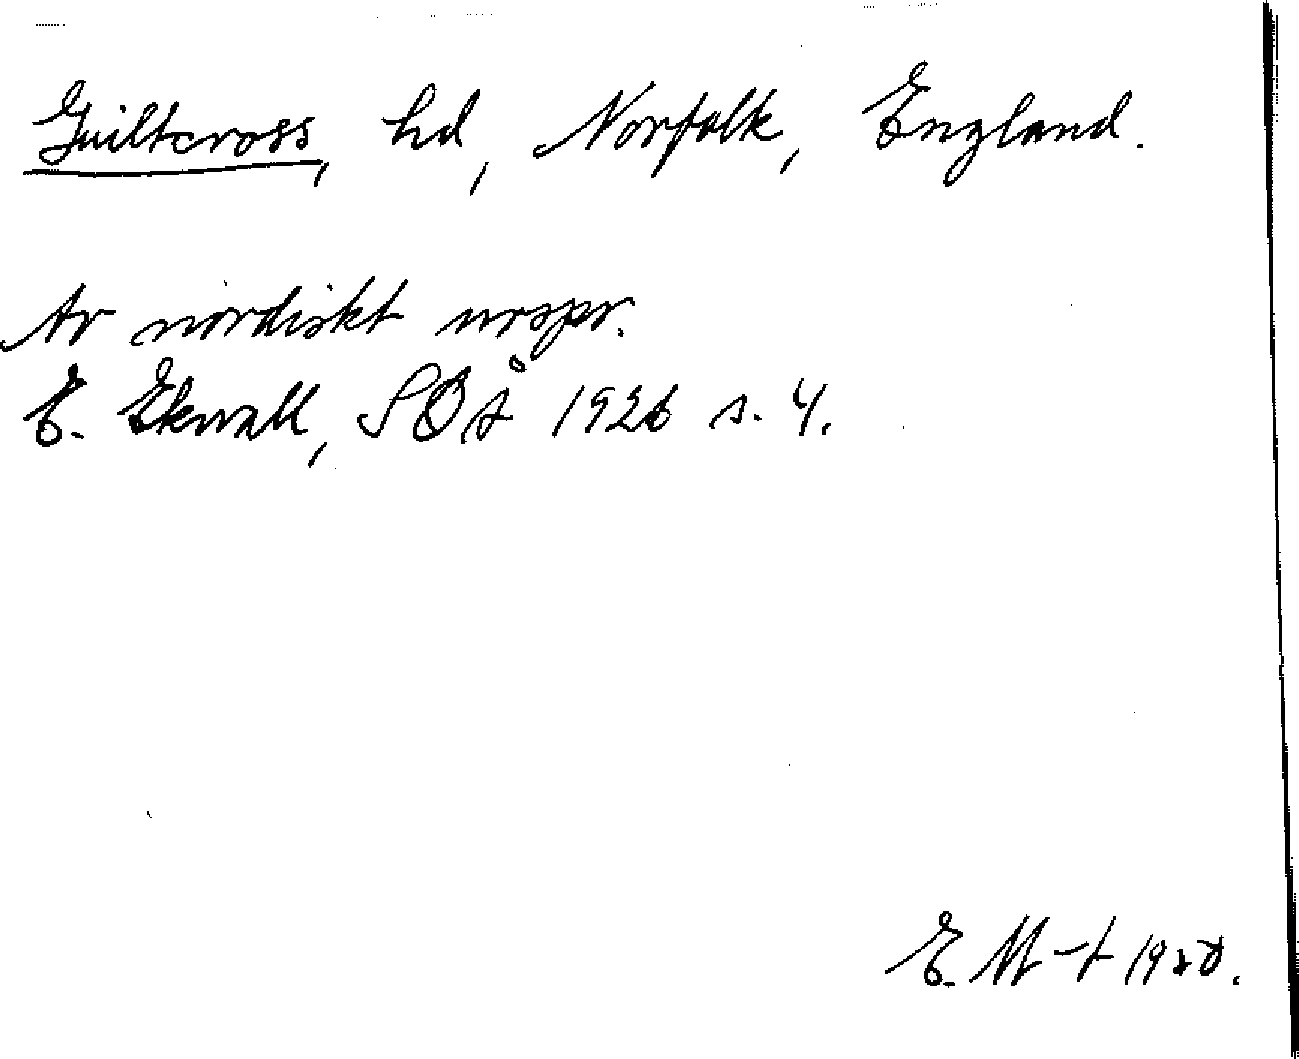 Guiltcross, hd, Norfolk, England.
Av nordiskt urspr.
E. Ekwall, SOÅ 1926 s. 4.
E. M-t